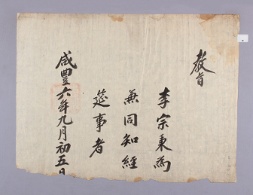 教旨
李宗秉爲
兼同知經
筵事者
咸豐六年九月初五日